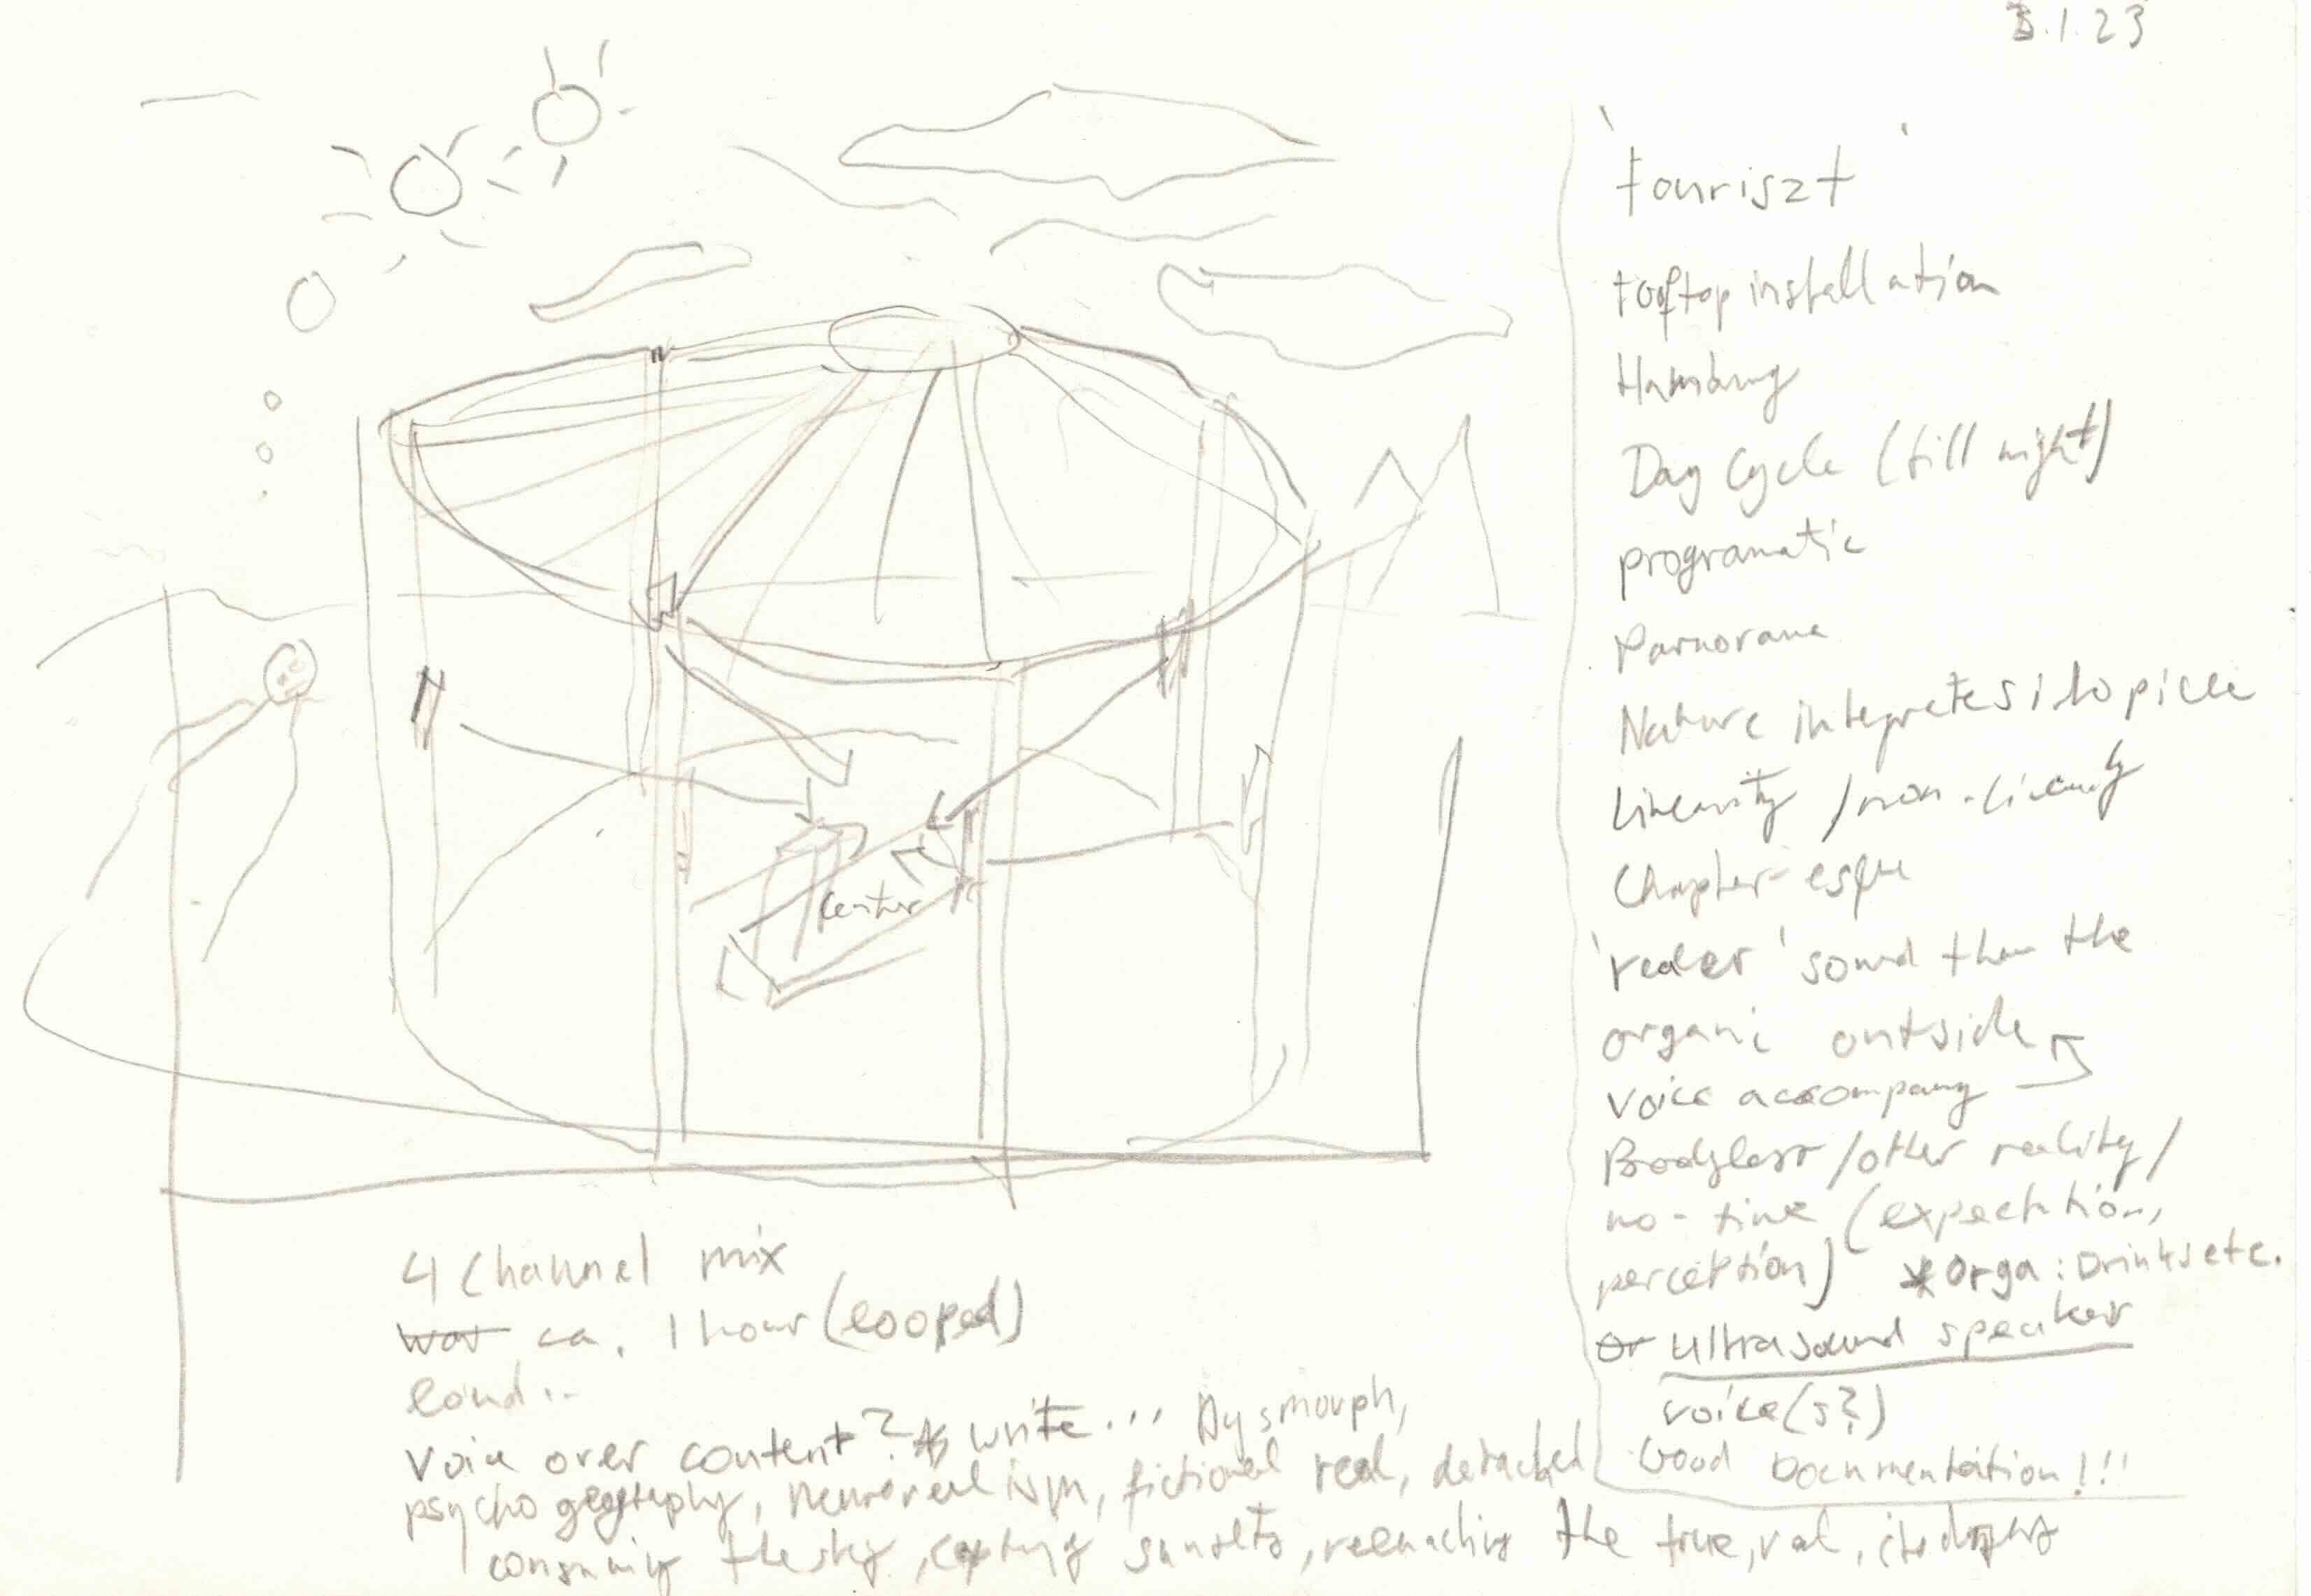 3.1.23
'touriszt'
rooftop installation
Hamburg
Day Cycle (till night)
programatic
Parnorama
Nature integretes ito piece
Linearity / non-linearity
Chapter-esque
'realer' sound than the
organic outside
voice accompany
Bodyless / other reality /
no-time (expectation,
perception) * Orga: Drinks etc.
or ultrasound speaker
voice(s?)
Good Documentation!!!
center
4 Channel mix
ca. 1 hour (looped)
loud..
Voice over content? write... Dysmorph,
psycho geography, neurorealism, fictional real, detached
consuming the sky, sunsets, reenacting the true, real,